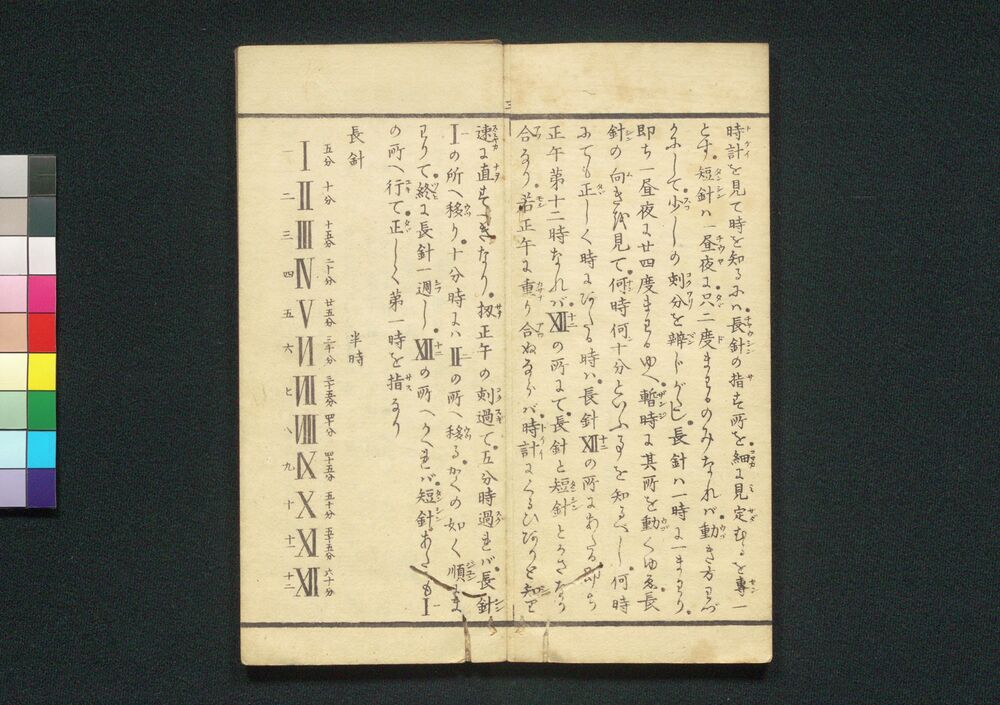 時計を見て時を知るにハ長針の指す所を細に見定むるを専一
とす短針ハ一昼夜に只二度まわるのみなれバ動き方わづ
かにして少しの刻分を辨じがたし長針ハ一時に一まわり
即ち一昼夜に廿四度まわるゆへ暫時に其所を動くゆゑ長
針の向きを見て何時何十分といふ事を知るべし何時
にても正しく時にあたる時ハ長針XIIの所にあたる即ち
正午第十二時なれバXIIの所にて長針と短針とかさなり
合なり若正午に重り合ぬならバ時計にくるひありと知り
速に直すべきなり扨正午の刻過て五分時過れバ長針
Iの所へ移り十分時にハIIの所へ移るかくの如く順にま
わりて終に長針一週しXIIの所へかへれバ短針ハあたかもI
の所へ行て正しく第一時を指なり
長針 半時
五分 十分 十五分 二十分 廿五分 三十分 三十五分 四十分 四十五分 五十分 五十五分 六十分
I II III IV V VI VII VIII IX X XI XII
一 二 三 四 五 六 七 八 九 十 十一 十二
三